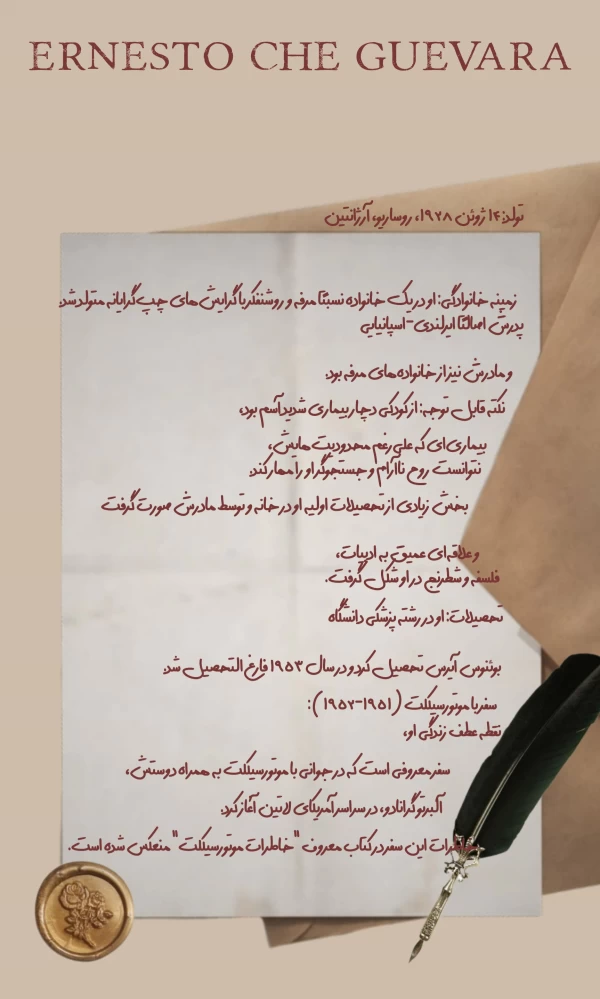 ERNESTO CHE GUEVARA
تولد: ۱۴ ژوئن ۱۹۲۸، روساریو، آرژانتین
زمینه خانوادگی: او در یک خانواده نسبتا مرفه و روشنفکر با گرایش های چپ گرایانه متولد شد.
پدرش اصالتا ایرلندی-اسپانیایی
و مادرش نیز از خانواده های مرفه بود.
نکته قابل توجه: از کودکی دچار بیماری شدید آسم بود،
بیماری ای که علی رغم محدودیت هایش،
نتوانست روح ناآرام و جستجوگر او را مهار کند.
بخش زیادی از تحصیلات اولیه او در خانه و توسط مادرش صورت گرفت
و علاقه ای عمیق به ادبیات،
فلسفه و شطرنج در او شکل گرفت.
تحصیلات: او در رشته پزشکی دانشگاه
بوئنوس آیرس تحصیل کرد و در سال ۱۹۵۳ فارغ التحصیل شد.
سفر با موتورسیکلت (۱۹۵۱-۱۹۵۲):
نقطه عطف زندگی او،
سفر معروفی است که در جوانی با موتورسیکلت به همراه دوستش،
آلبرتو گرانادو، در سراسر آمریکای لاتین آغاز کرد.
خاطرات این سفر در کتاب معروف "خاطرات موتورسیکلت" منعکس شده است.